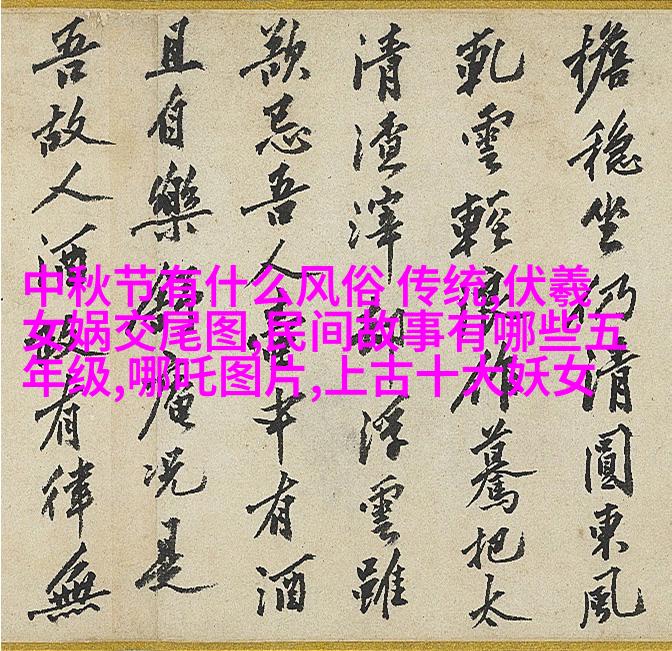 檐穩坐仍清圓東風
雲輕作驀把太
清渣滓浮雲雖
忌吾人中有酒
且自樂況是
吾故人酒有律無
中秋节有什么风俗 传统,伏羲
女娲交尾图,民间故事有哪些五
年级,哪吒图片,上古十大妖女